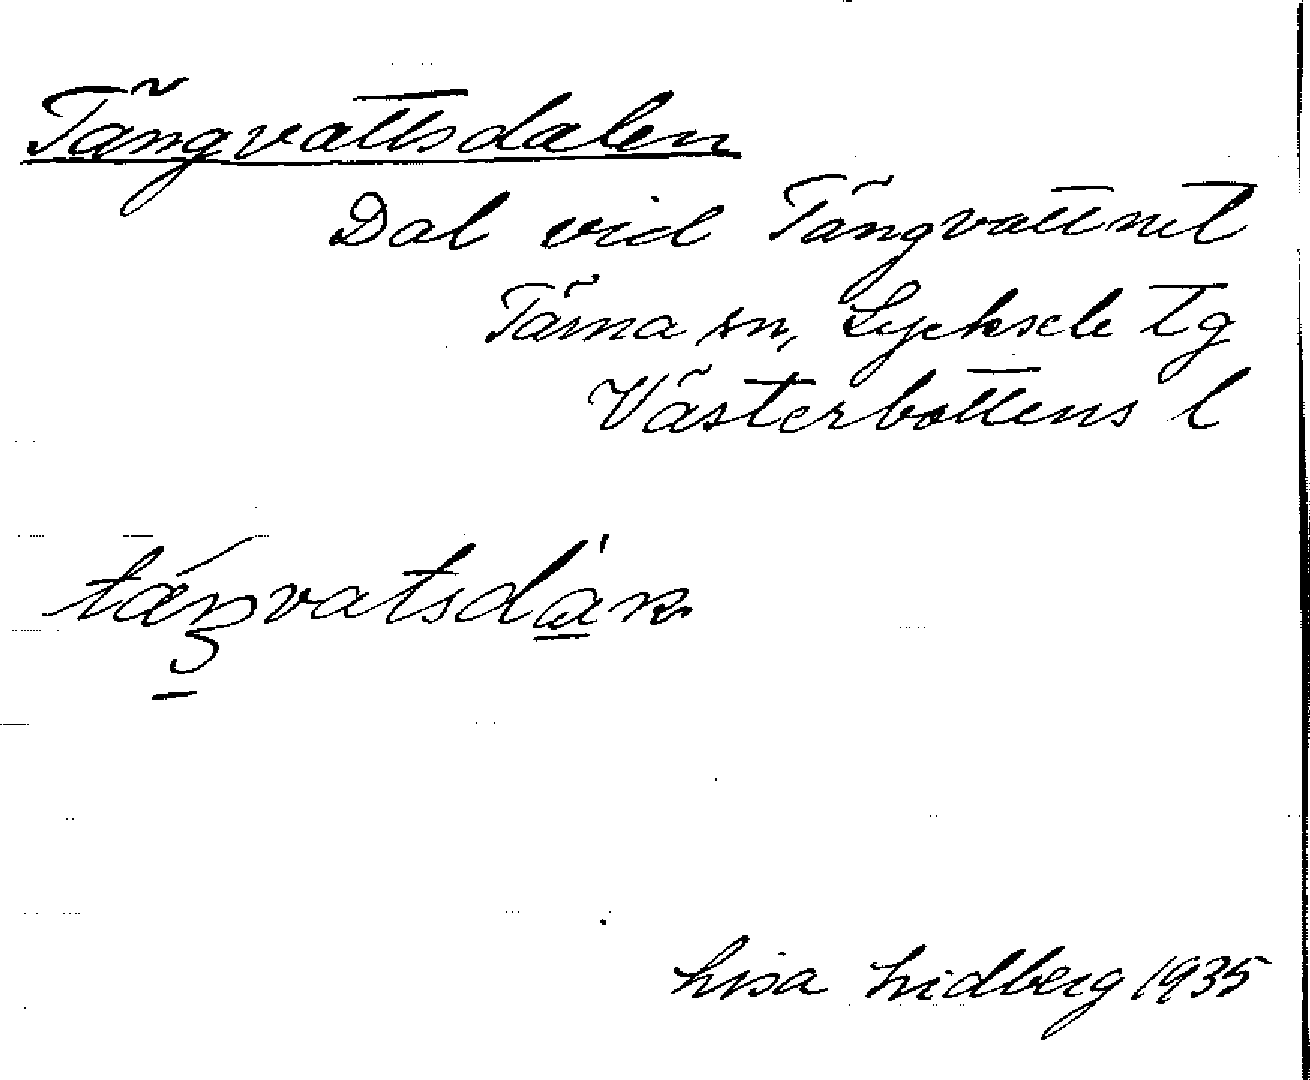 Tängvattsdalen
Dal vid Tängvattnet
Tärna sn, Lycksele tg
Västerbottens l
Lisa Lidberg 1935